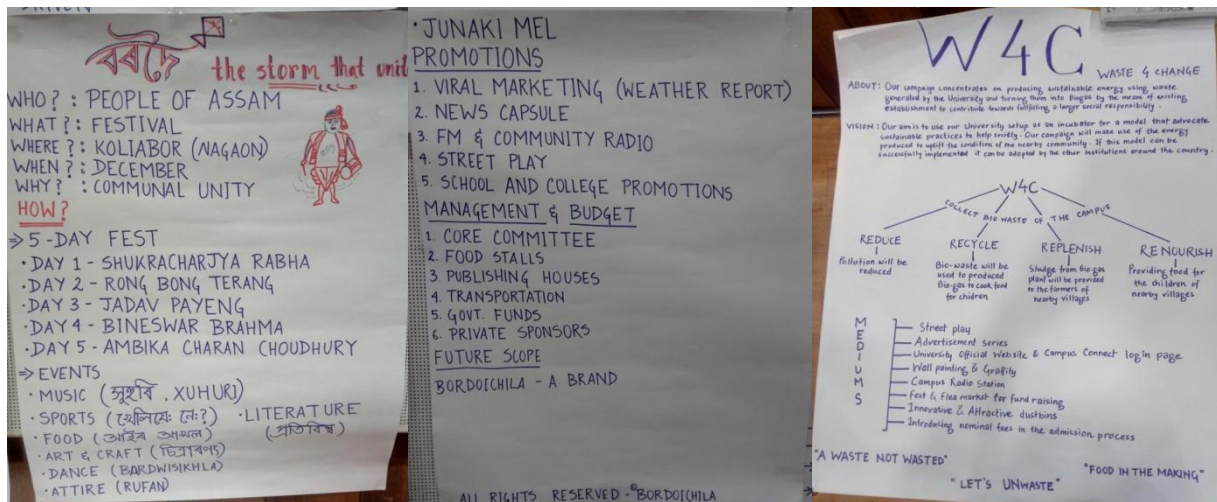 the storm that unit
WHO? : PEOPLE OF ASSAM
WHAT? : FESTIVAL
WHERE? : KOLIABOR (NAGAON)
WHEN? : DECEMBER
WHY? : COMMUNAL UNITY
HOW?
⇒ 5-DAY FEST
· DAY 1 - SHUKRACHARJYA RABHA
· DAY 2 - RONG BONG TERANG
· DAY 3 - JADAV PAYENG
· DAY 4 - BINESWAR BRAHMA
· DAY 5 - AMBIKA CHARAN CHOUDHURY
⇒ EVENTS
· MUSIC ( , XUHURI)
· SPORTS
· LITERATURE
· FOOD
(প্রতিবিম্ব)
· ART & CRAFT
· DANCE (BARDWISIKHLA)
· ATTIRE (RUFAN)
· JUNAKI MEL
PROMOTIONS
1. VIRAL MARKETING (WEATHER REPORT)
2. NEWS CAPSULE
3. FM & COMMUNITY RADIO
4. STREET PLAY
5. SCHOOL AND COLLEGE PROMOTIONS
MANAGEMENT & BUDGET
1. CORE COMMITTEE
2. FOOD STALLS
3. PUBLISHING HOUSES
4. TRANSPORTATION
5. GOVT. FUNDS
6. PRIVATE SPONSORS
FUTURE SCOPE
BORDOICHILA - A BRAND
ALL RIGHTS RESERVED - ©BORDOICHILA
W4C
WASTE 4 CHANGE
ABOUT: Our campaign concentrates on producing sustainable energy using waste
generated by the University and turning them into Biogas by the means of existing
establishment to contribute towards fulfilling a larger social responsibility.
VISION: Our aim is to use our University setup as an incubator for a model that advocate
sustainable practices to help society. Our campaign will make use of the energy
produced to uplift the condition of the nearby community. If this model can be
successfully implemented it can be adopted by the other institutions around the country.
W4C
COLLECT BIO WASTE OF THE CAMPUS
REDUCE
Pollution will be
reduced
RECYCLE
Bio-waste will be
used to produced
Bio-gas to cook food
for chidren
REPLENISH
Sludge from Bio-gas
plant will be provided
to the farmers of
nearby villages
RENOURISH
Providing food for
the children of
nearby villages
MEDIUMS
Street play
Advertisement series
University Official Website & Campus Connect login page
Wall painting & Grafity
Campus Radio Station
Fest & Flea market for fund raising
Innovative & Attractive dustbins
Introducing nominal fees in the admission process
"A WASTE NOT WASTED"
"LET'S UNWASTE"
"FOOD IN THE MAKING"